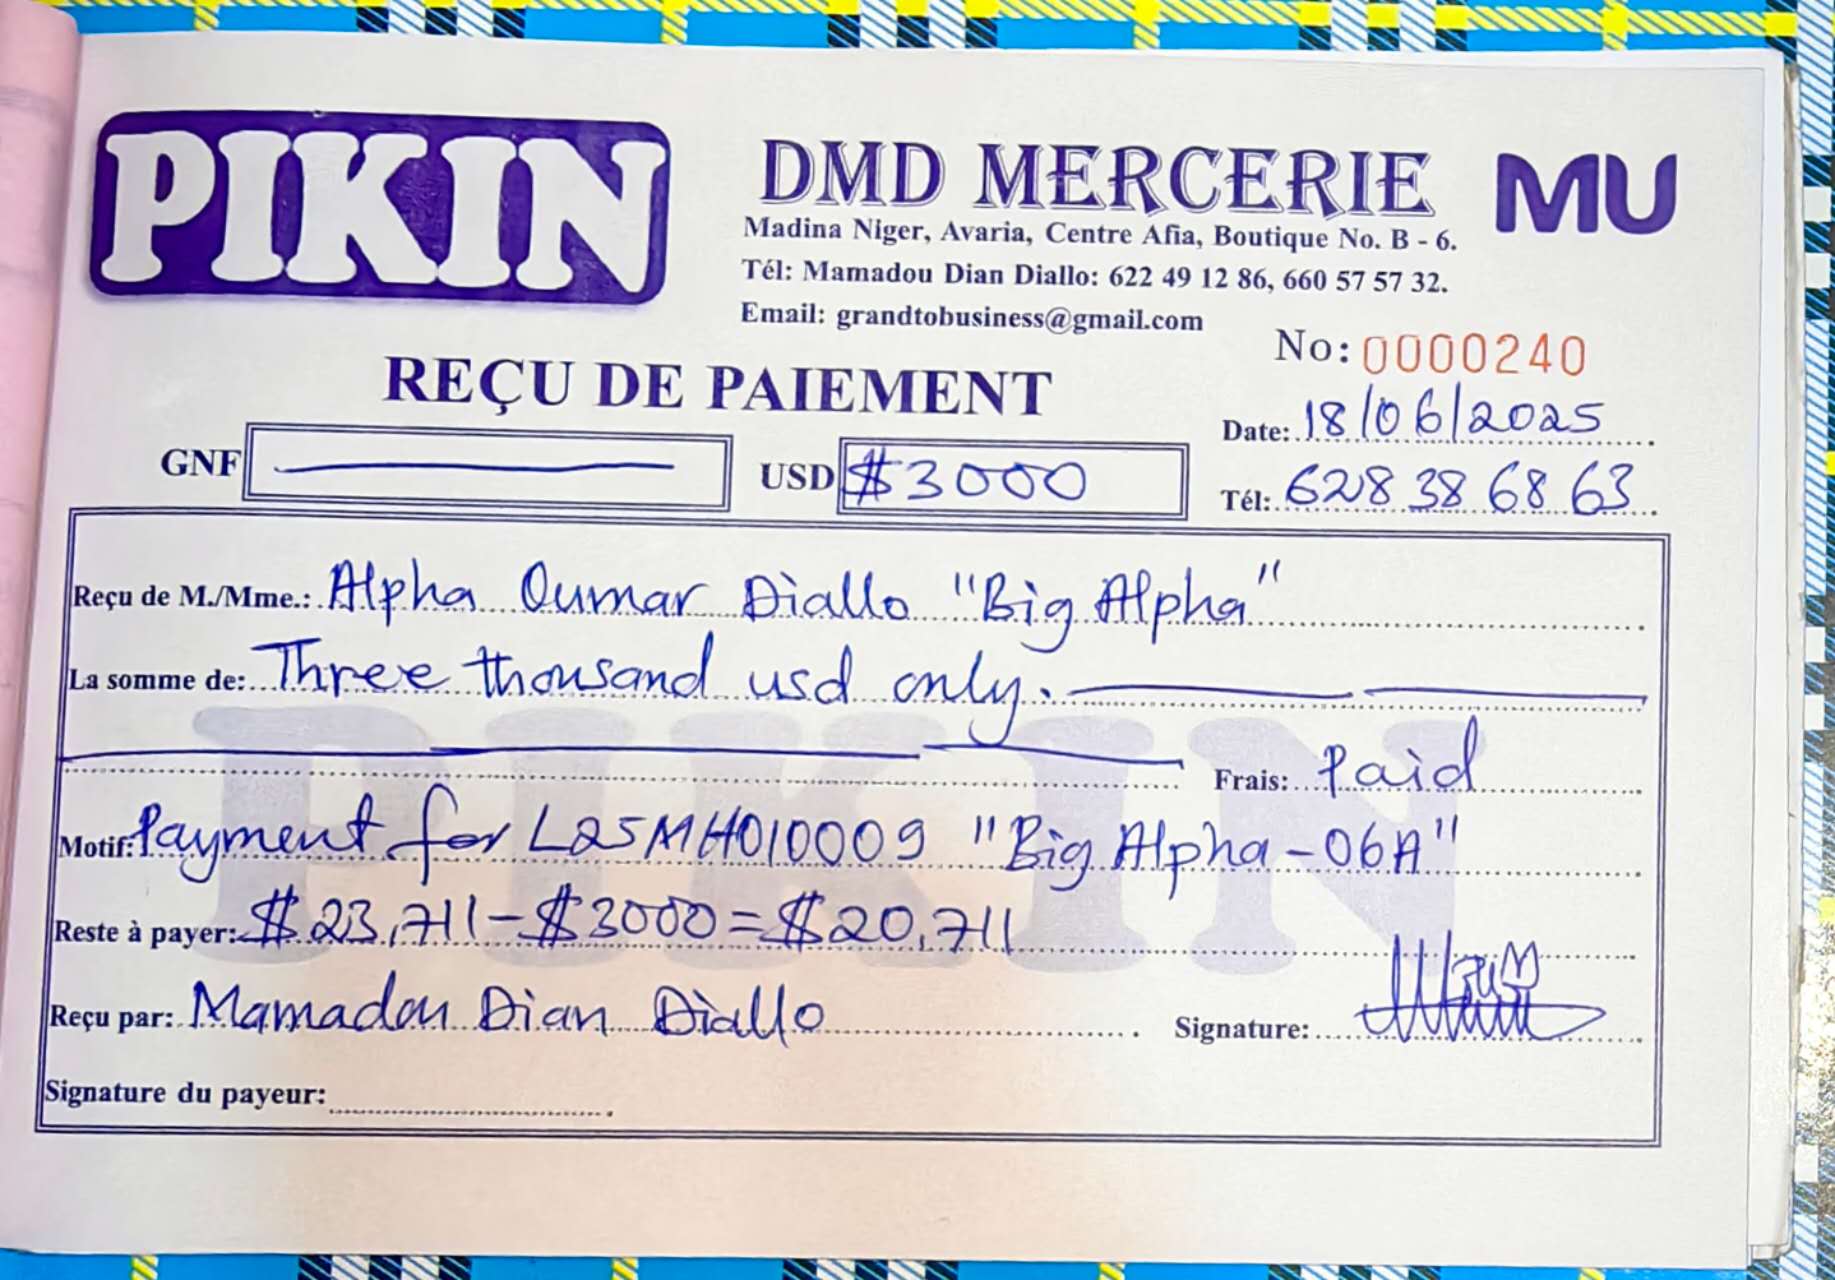 PIKIN
DMD MERCERIE
MU
Madina Niger, Avaria, Centre Afia, Boutique No. B - 6.
Tél: Mamadou Dian Diallo: 622 49 12 86, 660 57 57 32.
Email: grandtobusiness@gmail.com
No: 0000240
REÇU DE PAIEMENT
Date: 18/06/2025
GNF
USD $3000
Tél: 628 38 68 63
Reçu de M./Mme.: Alpha Oumar Diallo "Big Alpha"
La somme de: Three thousand usd only.
Frais: Paid
Motif: Payment for L25MH010009 "Big Alpha-06A"
Reste à payer: $23,711-$3000=$20,711
Reçu par: Mamadou Dian Diallo
Signature:
Signature du payeur:
PIKIN